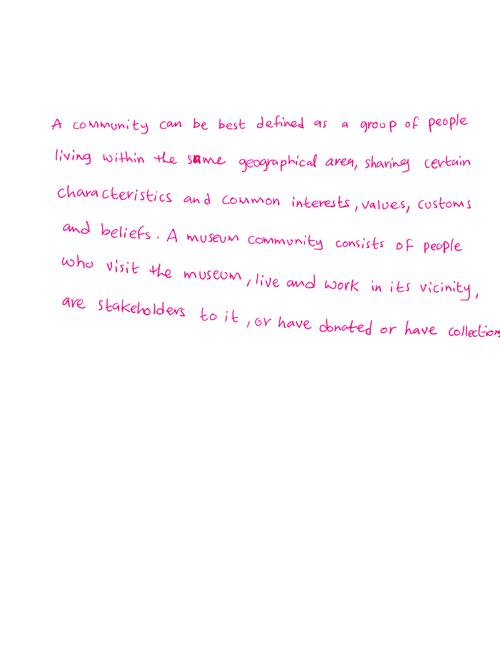 A community can be best defined as a group of people
living within the same geographical area, sharing certain
characteristics and common interests, values, customs
and beliefs. A museum community consists of people
who visit the museum, live and work in its vicinity,
are stakeholders to it, or have donated or have collections